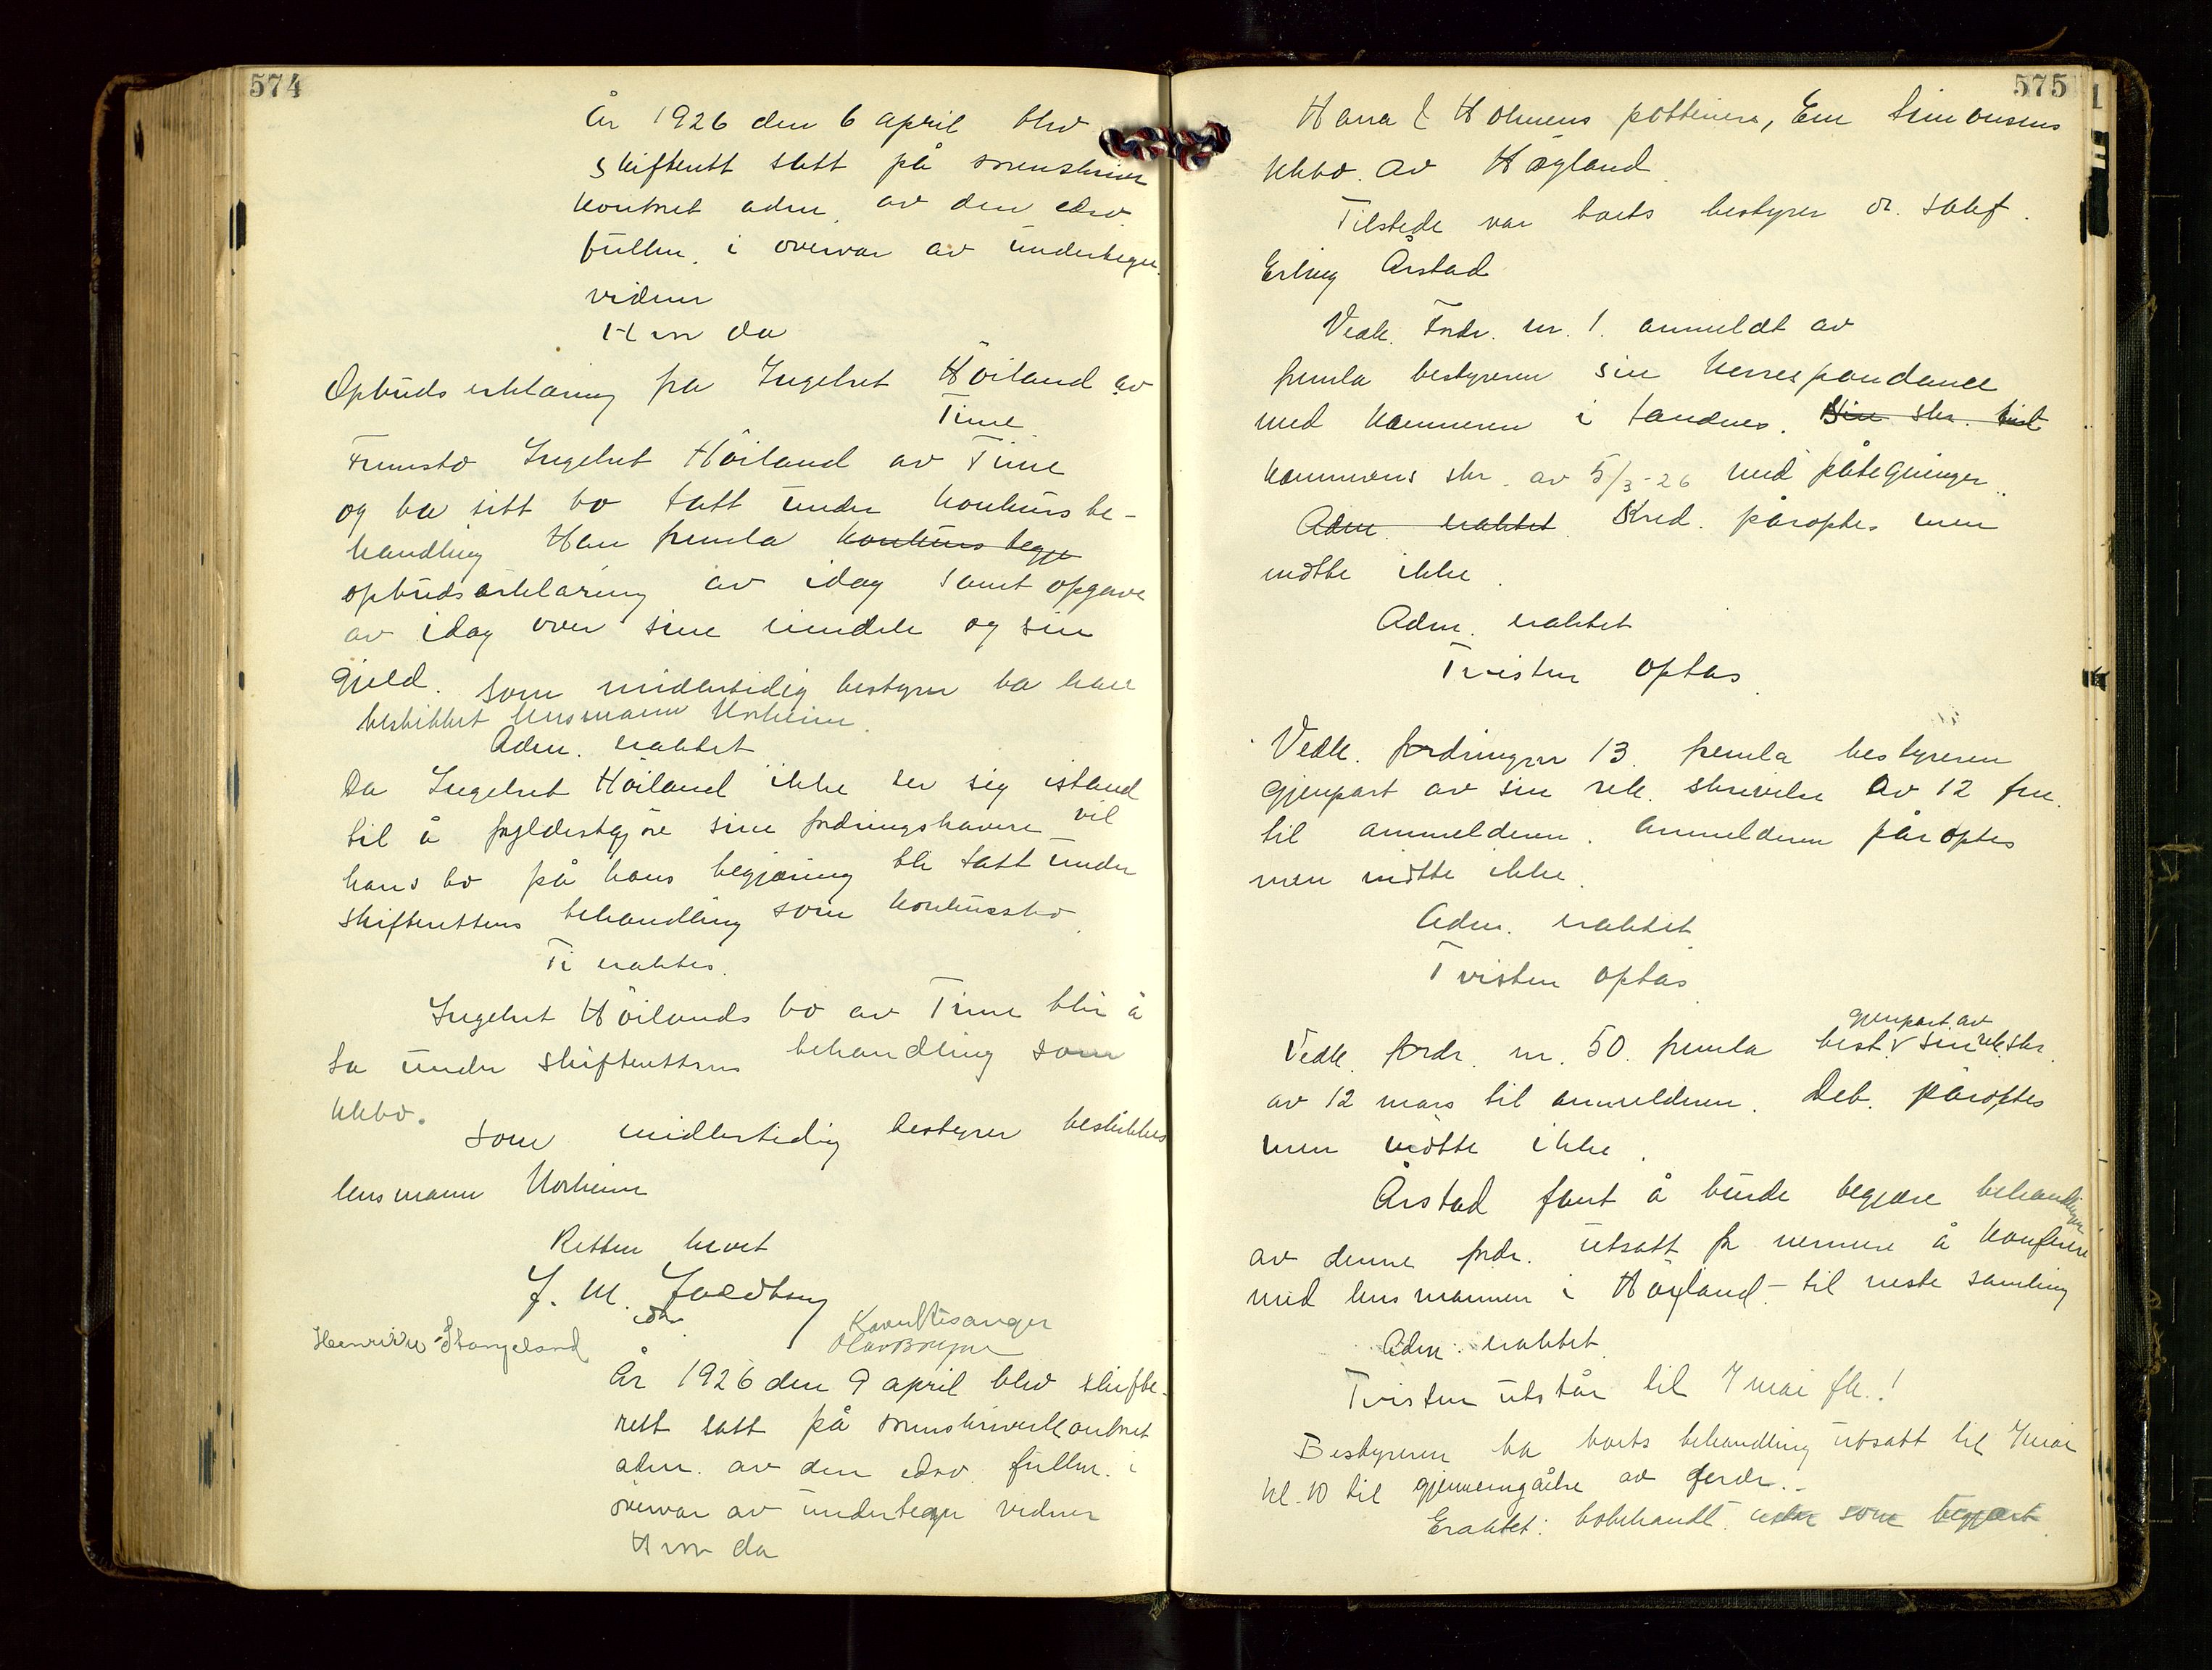 574
År 1926 den 6 april blev
skifterett satt på sorenskriver
kontoret adm. av den edsv.
fullm. i overvær av undertegn.
vidner
Hvor da
Opbuds erklæring fra Ingebret Höiland av
Time
Fremsto Ingebret Höiland av Time
og ba sitt bo tatt under konkurs be-
handling Han fremla konkurs begjæ
opbudserklæring av idag samt opgave
av idag over sine eiendele og sin
gjeld. Som midlertidig bestyrer ba han
beskikket lensmann Norheim
Adm. eraktet
Da Ingebret Höiland ikke ser sig istand
til å fyldestgjøre sine fordringshavere vil
hans bo på hans begjæring bli tatt under
skifterettens behandling som konkursbo.
Ti eraktes.
Ingebret Höilands bo av Time blir å
ta under skifterettens behandling som
kkbo.
Som midlertidig bestyrer beskikkes
lensmann Norheim
Retten hevet
J. M.
edsv.
Henrikke Stangeland
År 1926 den 9 april blev skifte-
rett satt på sorenskriverkontoret
adm. av den edsv. fullm. i
overvær av undertegn vidner
Hvor da
575
Hana & Holmens potteri, Em Simonsens
kkbo. av Høyland.
Tilstede var boets bestyrer or. sakf.
Erling Årstad
Vedk. Fordr. nr. 1. anmeldt av
fremla bestyreren sin korrespondance
med kemneren i Sandnes. Sin skr. sist
kemnerens skr. av 5/3-26 med påtegninger.
Adm. eraktet. Kred. påroptes men
møtte ikke.
Adm. eraktet
Tvisten optas.
Vedk. fordringen 13. fremla bestyreren
gjenpart av sin rek. skrivelse av 12 f.m.
til anmelderen. Anmelderen påroptes
men møtte ikke.
Adm. eraktet.
Tvisten optas
gjenpart av
Vedk. fordr. nr. 50. fremla best. v sin rek. skr.
av 12 mars til anmelderen. Deb. påroptes
men møtte ikke.
Årstad fant å burde begjære behandlingen
av denne fordr. utsatt for nermere å konferere
med lensmannen i Høyland - til neste samling
Adm. eraktet.
Tvisten utstår til 7 mai fk.!
Bestyreren ba boets behandling utsatt til 7 mai
kl. 10 til gjennemgåelse av fordr..
Eraktet: bobehandl. utstår som begjært.